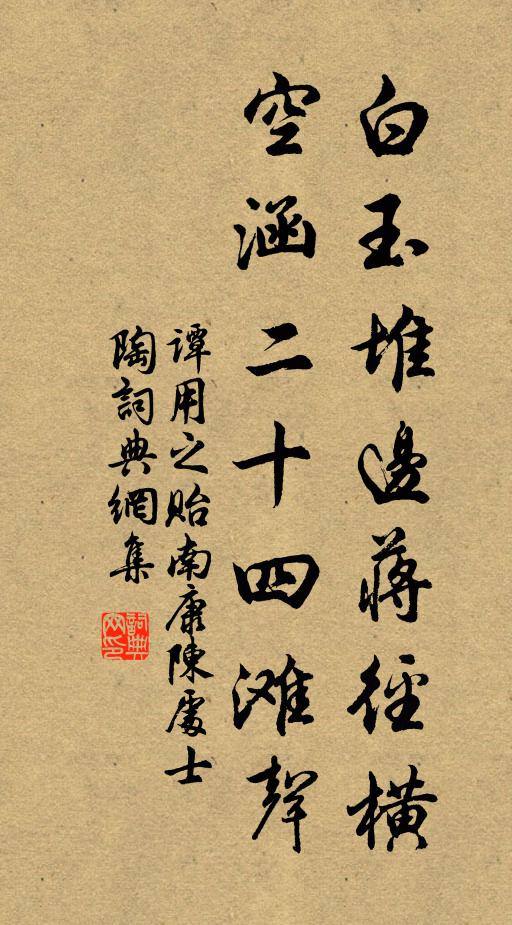 白玉堆邊蔣徑橫
空涵二十四滩聲
譚用之貽南康陳處士
陶詞典網集
詞典网印